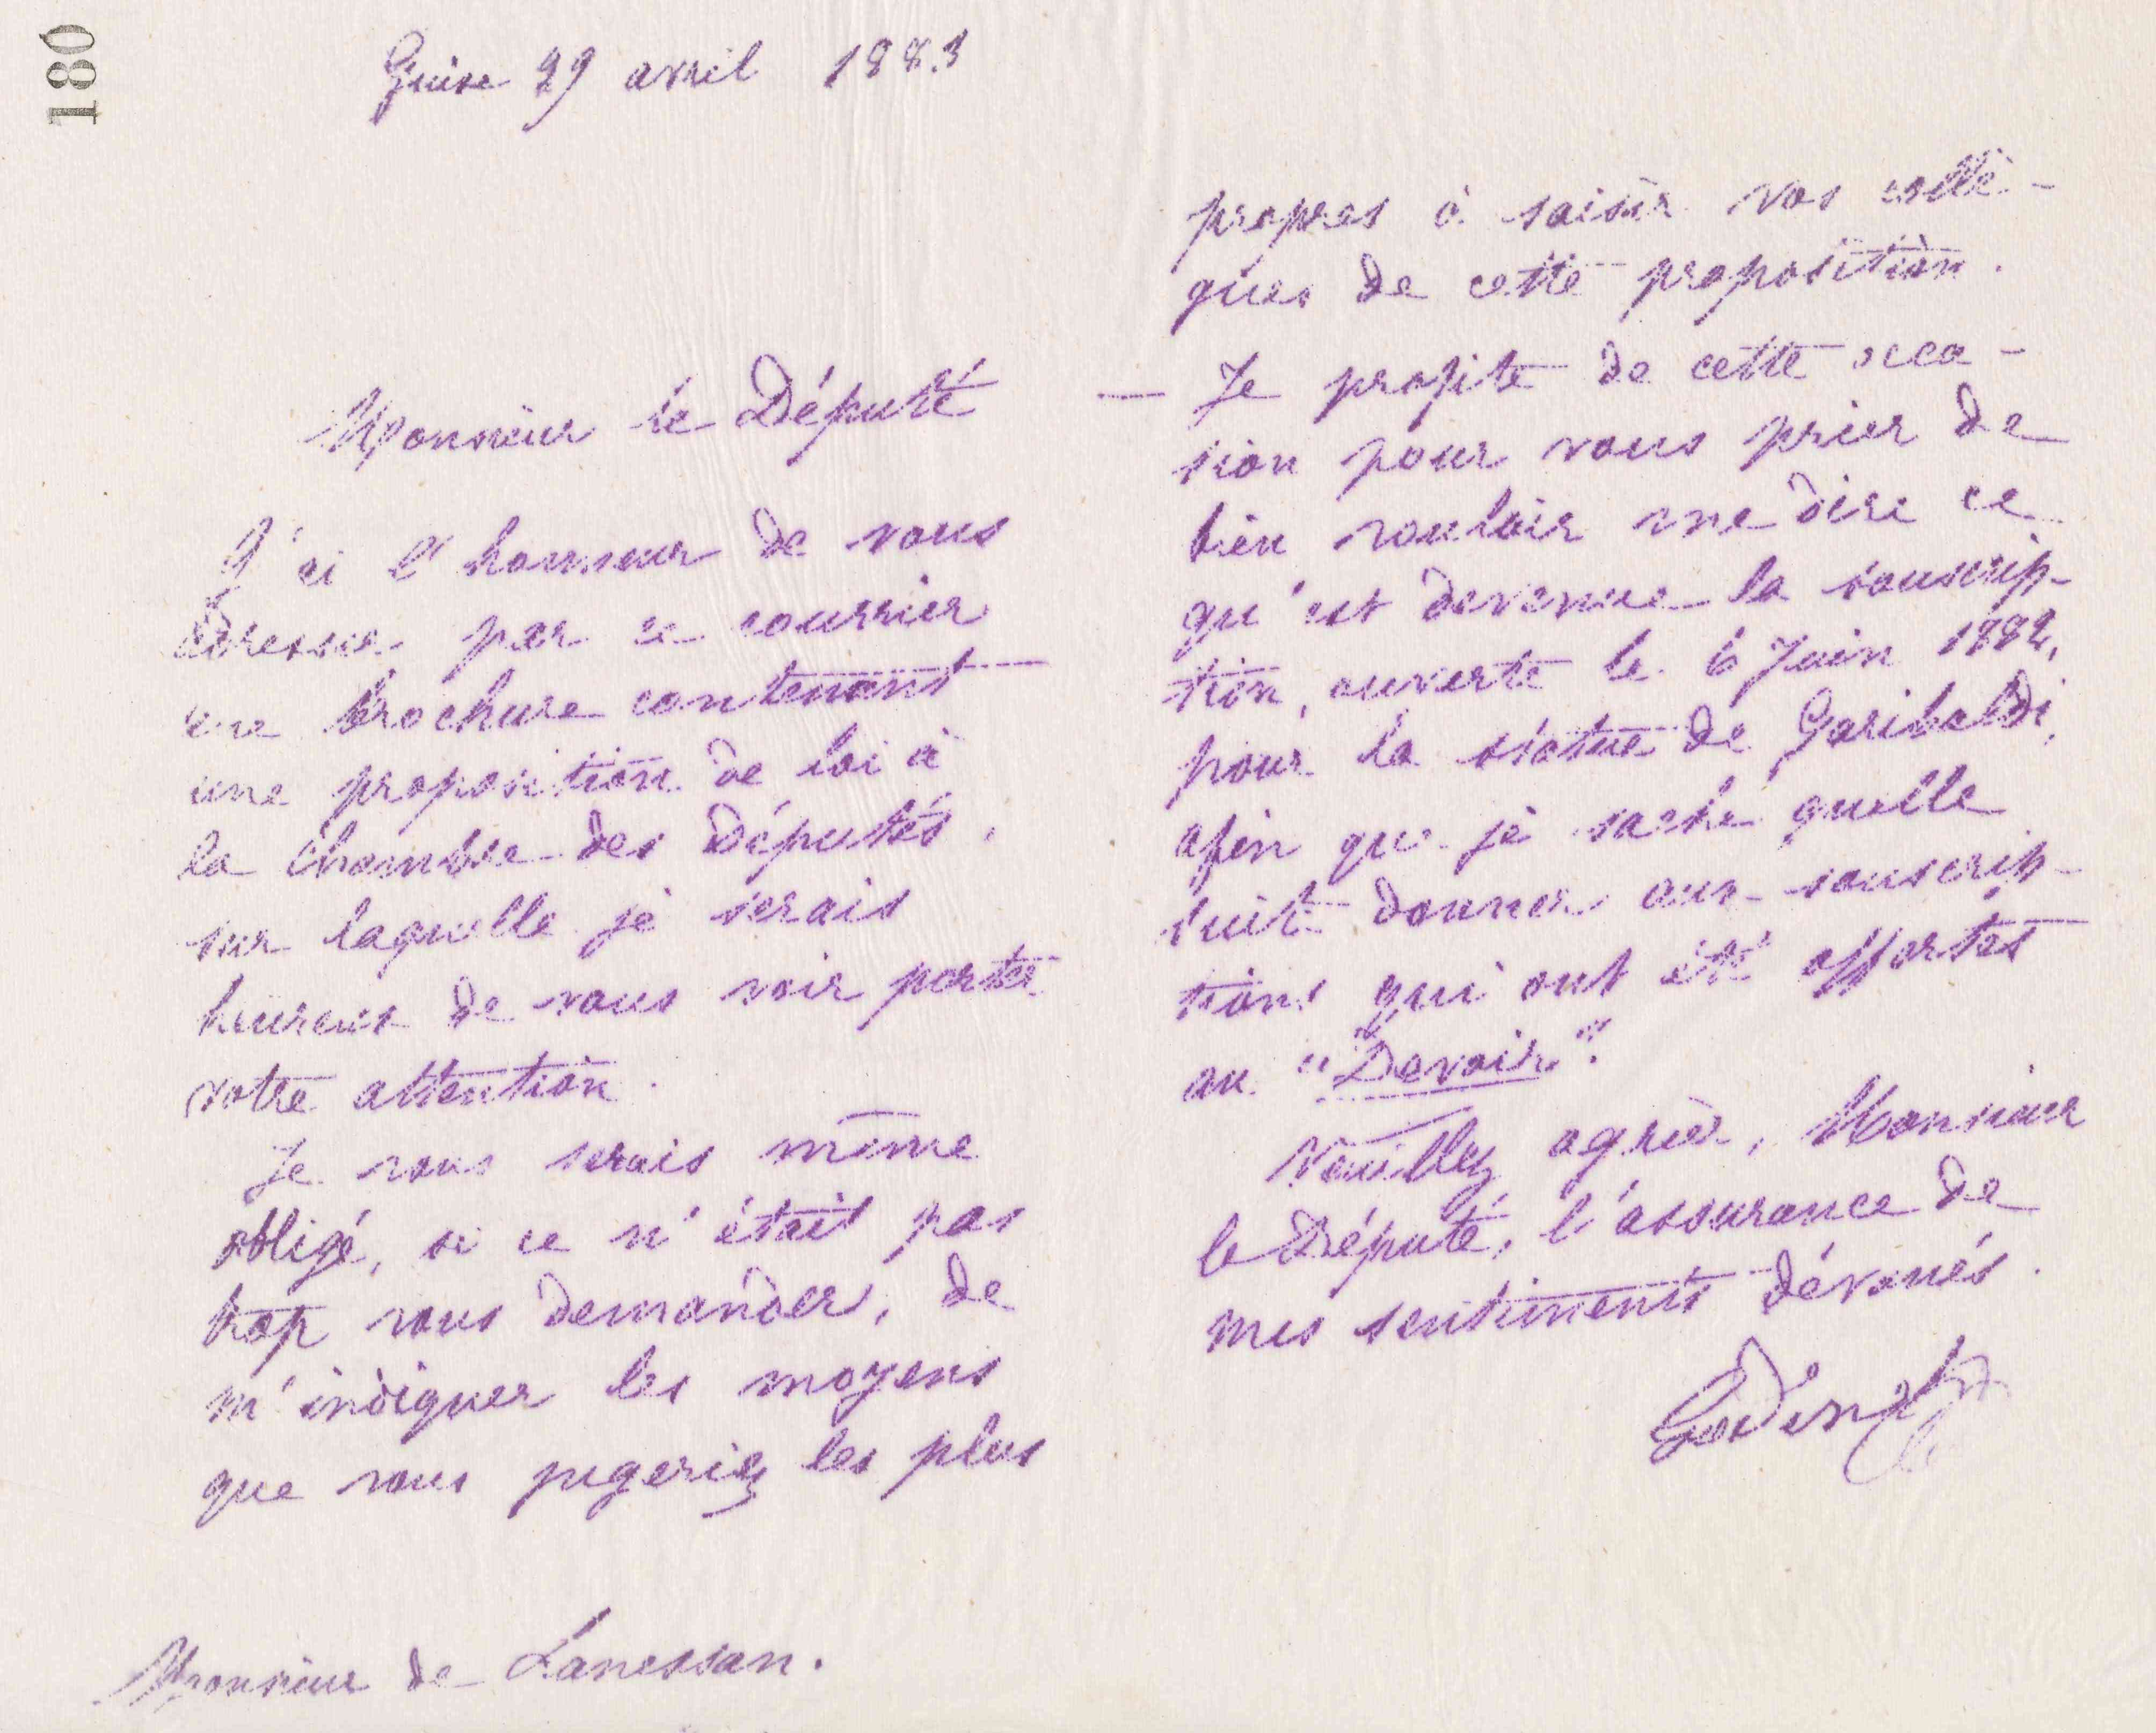 180
Guise 29 avril 1883
Monsieur le Député
J'ai l'honneur de vous
adresser par ce courrier
une brochure contenant
une proposition de loi à
la Chambre des Députés,
sur laquelle je serais
heureux de vous voir porter
votre attention.
Je vous serais même
obligé, si ce n'était pas
trop vous demander, de
m'indiquer les moyens
que vous jugeriez les plus
Monsieur de Lanessan.
propres à saisir vos collè-
gues de cette proposition.
— Je profite de cette occa-
sion pour vous prier de
bien vouloir me dire ce
qu'est devenue la souscrip-
tion, ouverte le 6 Juin 1882,
pour la statue de Garibaldi,
afin que je sache quelle
suite donner aux souscrip-
tions qui ont été offertes
au "Devoir".
Veuillez agréer, Monsieur
le Député, l'assurance de
mes sentiments dévoués.
Godin